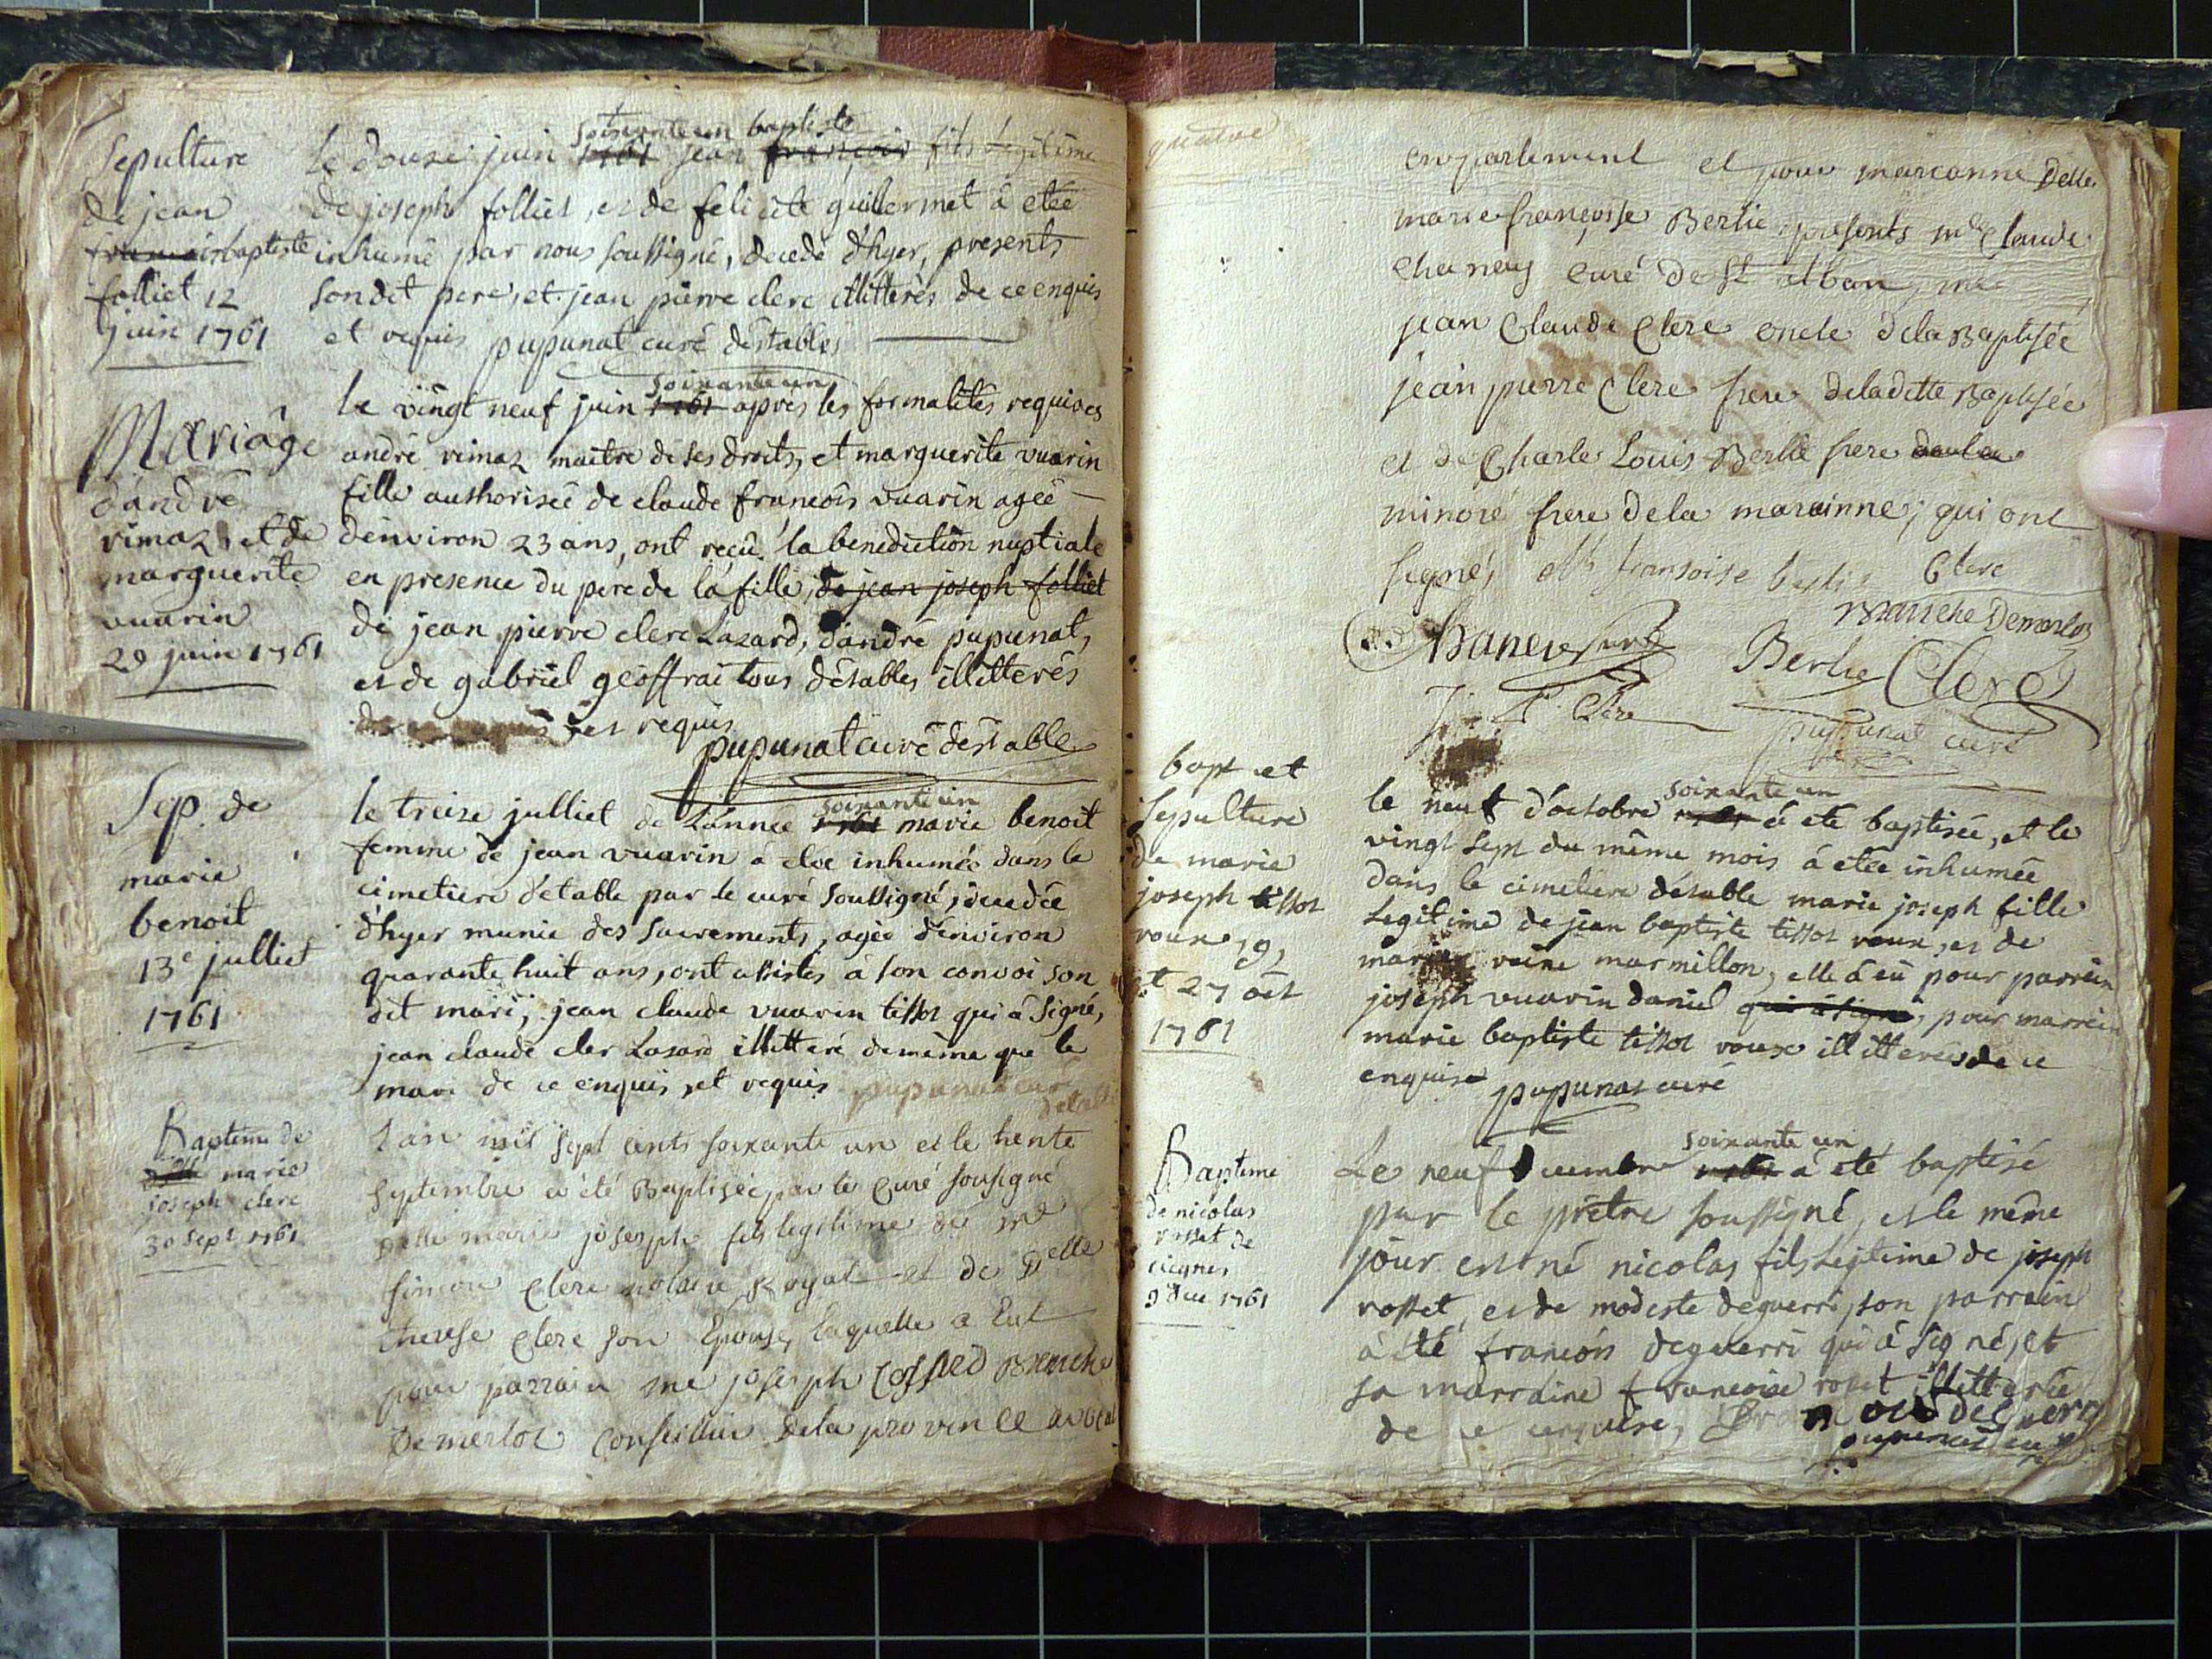 Sepulture
de jean
baptiste
folliet 12
juin 1761
soixante un baptiste
le douze juin 1761 jean françois fils legitime
de joseph folliet, et de felicité guillermet à etée
inhumé par nous soussigné, decedé d'hyer, presents
son dit pere, et jean pierre clerc illitterés de ce enquis
et requis pupunat curé d'éstables
Mariâge
d'andré
rimaz, et de
marguerite
vuarin
29 juin 1761
soixante un
le vingt neuf juin 1761 apres les formalités requises
andré rimaz maitre de ses droits, et marguerite vuarin
fille authorisée de claude françois vuarin agée
d'environ 23 ans, ont reçû la benediction nuptiale
en presence du pere de la fille, de jean joseph folliet
de jean pierre clerc Lazard, d'andré pupunat,
et de gabriel géoffrai tous d'étables illitterés
et requis
pupunat curé d'estable
Sep. de
marie
benoit
13e julliet
1761
soixante un
le treize julliet de L'année 1761 marie benoit
femme de jean vuarin à etee inhumée dans le
cimetiere d'etable par le curé soussigné, decedée
d'hyer munie des sacrements, agée d'environ
quarante huit ans, ont assistés à son convoi son
dit mari, jean claude vuarin tissot qui à signé,
jean claude cler Lasard illitteré de même que le
mari de ce enquis, et requis pupunat curé
Baptême de
marie
joseph clerc
30 sept 1761
L'an mil sept cents soixante un et le trente
septembre a été Baptisée par le Curé sousigné
Delle marie josesph fils legitime de me
simon Clerc notaire Royal et de Delle
therese Clerc son Epouse, laquelle a Eut
pour parrain me joseph Cossied Branche
Demerloz Conseillier Dela province
en parlement et pour maranne Delle
marie françoise Berlie presents me Claude
Chaney Curé de St alban, me
jean Claude Clerc oncle dela Baptisée
jean pierre Clerc frere deladitte Baptisée
et de Charle Louis Berlie frere
minoré frere dela marainne, qui ont
signé, françoise berlie Clerc
Branche Demerloz
Chaney curé Berlie Clerc
Clerc
pupunat curé
bapt et
sepulture
de marie
joseph tissot
roux, 9,
et 27 oct
1761
soixante un
le neuf d'octobre 1761 à eté baptisée, et le
vingt sept du même mois à etée inhumée
dans le cimetiere d'étable marie joseph fille
legitime de jean baptiste tissot roux, et de
marmillon, elle à eû pour parrein
joseph vuarin daniel qui à signé, pour marrein
marie baptiste tissot roux illitterés de ce
enquis pupunat curé
Baptême
de nicolas
rosset de
9 Dec 1761
soixante un
Le neuf Decembre 1761 à eté baptisé
par le prêtre soussigné, et le même
jour est né nicolas fils legitime de joseph
rosset, et de modeste deguerri, son parrain
à eté françois deguerri qui à signé, et
sa marraine françoise roset illitterée
de ce enquise,
pupunat curé